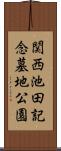 関西池田記
念墓地公園